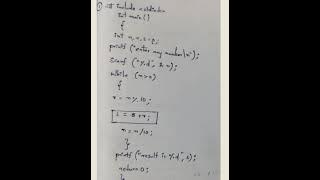 # include <stdio.h>
int main()
{
int n, r, s=0;
printf ("enter any number\n");
Scanf ("%d", & n);
while (n>0)
{
r = n % 10;
s = s+r;
n = n/10;
}
printf ("result is %d", s);
return 0;
}